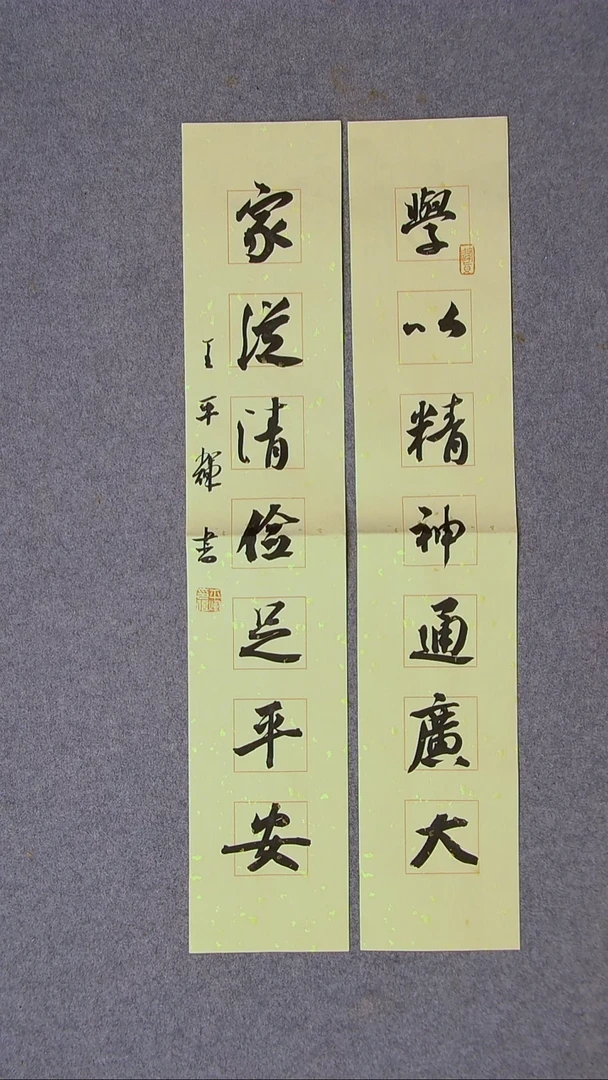 學以精神通廣大
家從清俭足平安
王平輝書